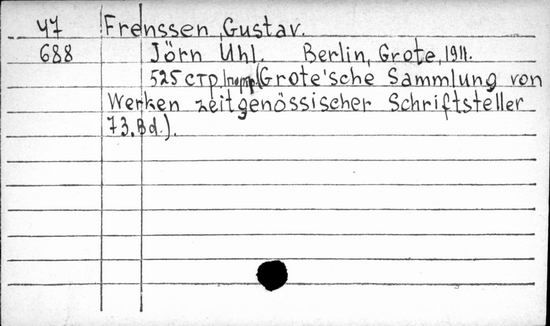 47 Frenssen, Gustav.
688 Jörn Uhl. Berlin, Grote, 1911.
525 стр. (Grote'sche Sammlung von
Werken zeitgenössischer Schriftsteller
73. Bd.).